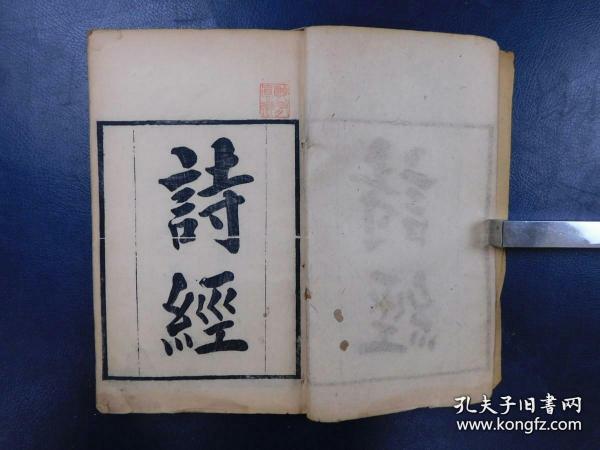 詩
經
孔夫子旧书网
www.kongfz.com